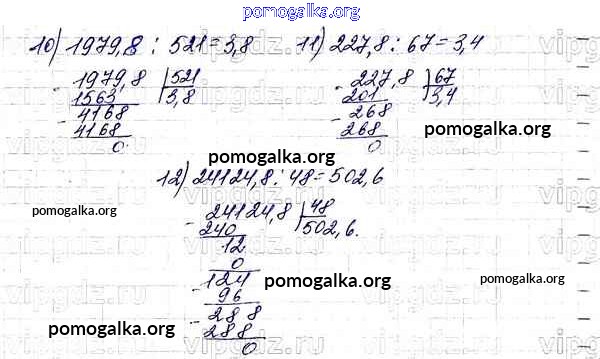 pomogalka.org
10) 1979,8 : 521 = 3,8
11) 227,8 : 67 = 3,4
- 1979,8 | 521
1563 3,8
- 4168
4168
0
- 227,8 | 67
201 3,4
- 268
268
0
pomogalka.org
12) 24124,8 : 48 = 502,6
pomogalka.org
- 24124,8 | 48
240 502,6.
12
0
- 124
96
- 288
288
0
pomogalka.org
pomogalka.org
pomogalka.org
pomogalka.org